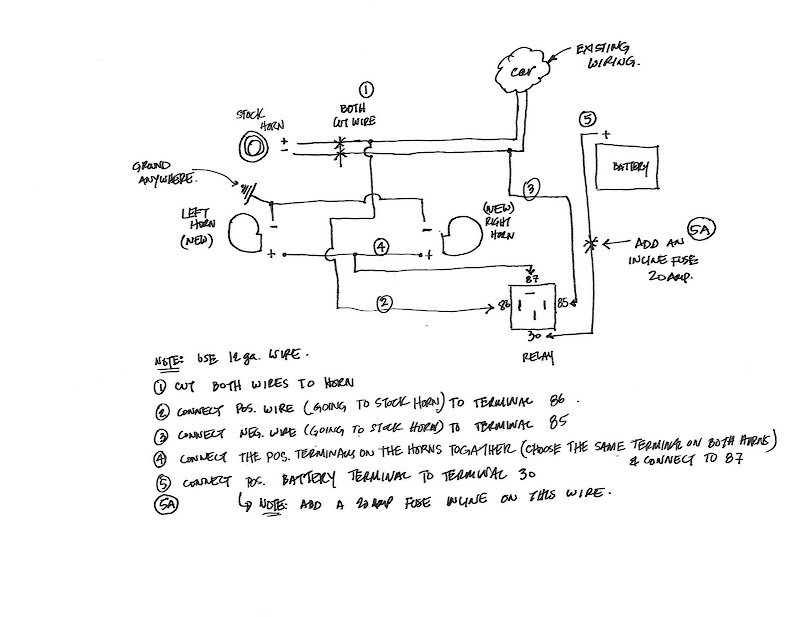 EXISTING
WIRING.
car
①
BOTH
CUT WIRE
STOCK
HORN
+
-
⑤
+
BATTERY
GROUND
ANYWHERE.
③
LEFT
HORN
(NEW)
-
+
(NEW)
RIGHT
HORN
-
+
④
5A
ADD AN
INLINE FUSE
20 AMP.
87
②
86
85
30
RELAY
NOTE: USE 12 ga. WIRE.
① CUT BOTH WIRES TO HORN
② CONNECT POS. WIRE (GOING TO STOCK HORN) TO TERMINAL 86.
③ CONNECT NEG. WIRE (GOING TO STOCK HORN) TO TERMINAL 85
④ CONNECT THE POS. TERMINALS ON THE HORNS TOGATHER (CHOOSE THE SAME TERMINAL ON BOTH HORNS)
& CONNECT TO 87
⑤ CONNECT POS. BATTERY TERMINAL TO TERMINAL 30
5A NOTE: ADD A 20 AMP FUSE INLINE ON THIS WIRE.